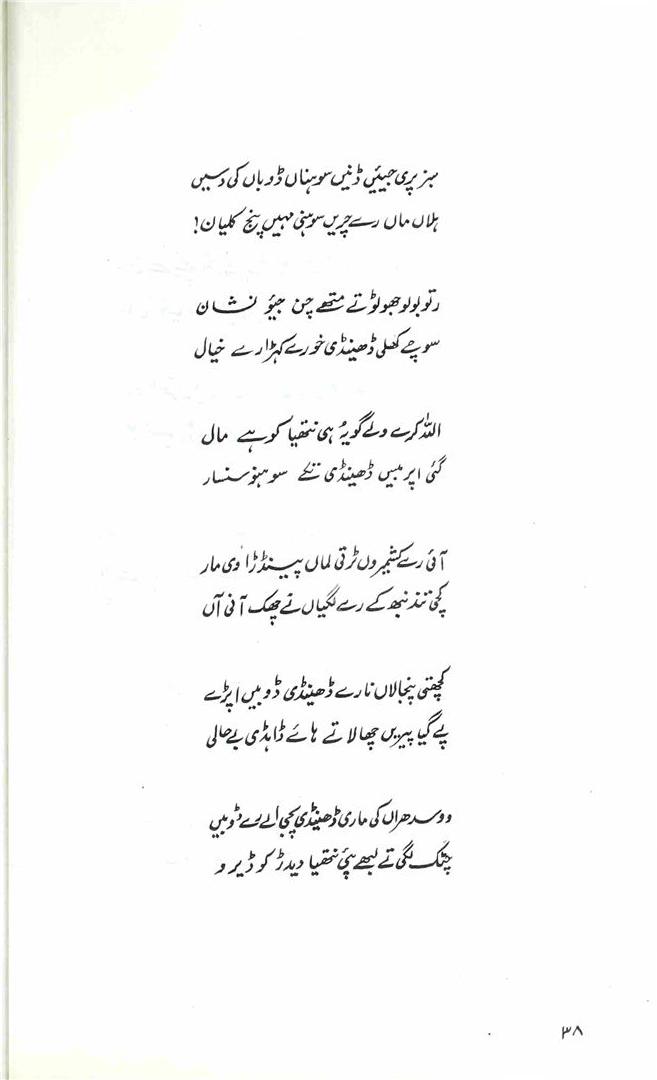 سبز پری جیئیں ڈنیں سوہناں ڈوباں کی دسیں
ہلاں ماں رے چریں سوہنی مہیں پنج کلیان!
رتو بولو جھولوڑ تے متھے چن جیئو نشان
سوچے کھلی ڈھینڈی خورے کہڑا رے خیال
اللہ کرے ولے گویہُ ہی نتھیا کوہے مال
گئی اپر مبیں ڈھینڈی نکے سوہنو سنسار
آئی رے کشمیروں ٹرتی لماں پینڈڑا وی مار
کچی تند نبھ کے رے لگیاں نے چھک آنی آں
کچھتی پنجالاں نا رے ڈھینڈی ڈوبیں اپڑے
پے گیا پیریں چھالا تے ہائے ڈاہڈی بے حالی
ووسدھراں کی ماری ڈھینڈی پچی اے رے ڈوبیں
چٹک لگی تے لبھے پئی نتھیا دیدڑ کو ڈیرو
۳۸